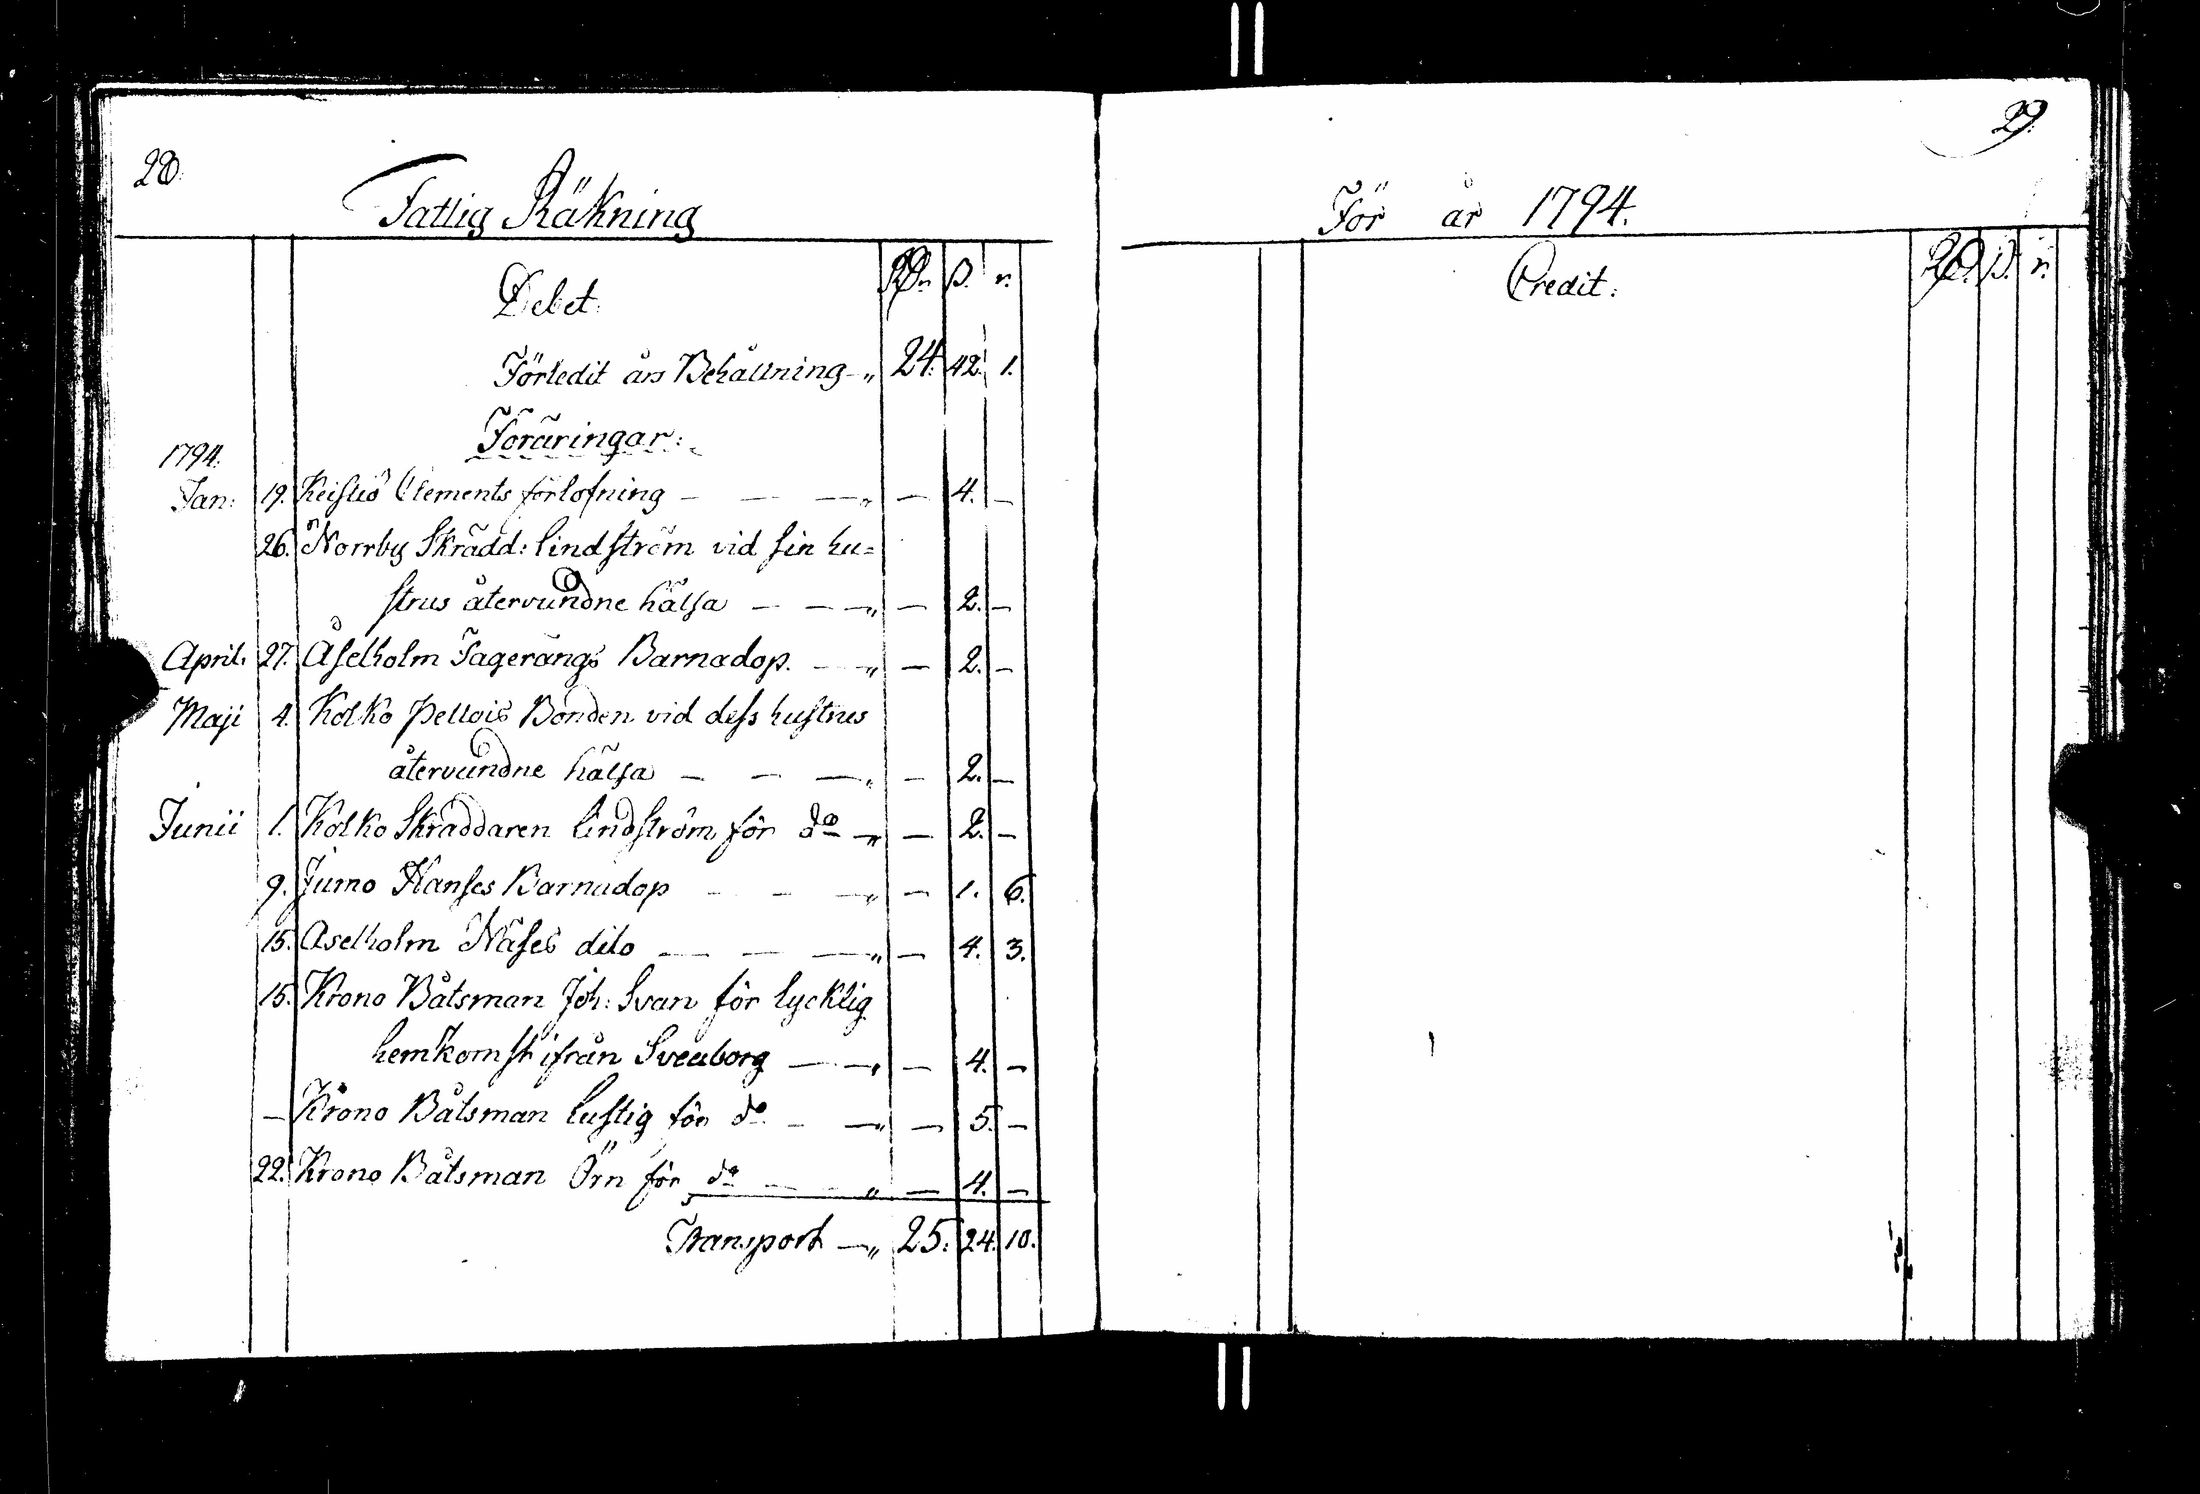 28.
Fattig Räkning
Debet. Rdr. ß. r.
Förledit års Behållning 24. 42. 1.
Föräringar:
1794.
Jan: 19. Keistiö Clements förlofning — — — „ — 4. —
26. Norrby Skrädd: Lindström vid sin hu=
strus återvundne hälsa — — — „ — 2. —
April. 27. Åselholm Fagerängs Barnadop. — „ — 2. —
Maji 4. Kolko Pellois Bonden vid dess hustrus
återvundne hälsa — — — „ — 2. —
Junii 1. Kolko Skräddaren Lindström för do — „ — 2. —
9. Jumo Hanses Barnadop — — — „ — 1. 6.
15. Aselholm Näses dito — — — „ — 4. 3.
15. Krono Båtsman Joh: Svan för lycklig
hemkomst ifrån Sveaborg — — „ — 4. —
— Krono Båtsman Lustig för do — — „ — 5. —
22. Krono Båtsman Örn för do — — „ — 4. —
Transport — „ 25. 24. 10.
29.
För år 1794.
Credit: Rd. ß. r.